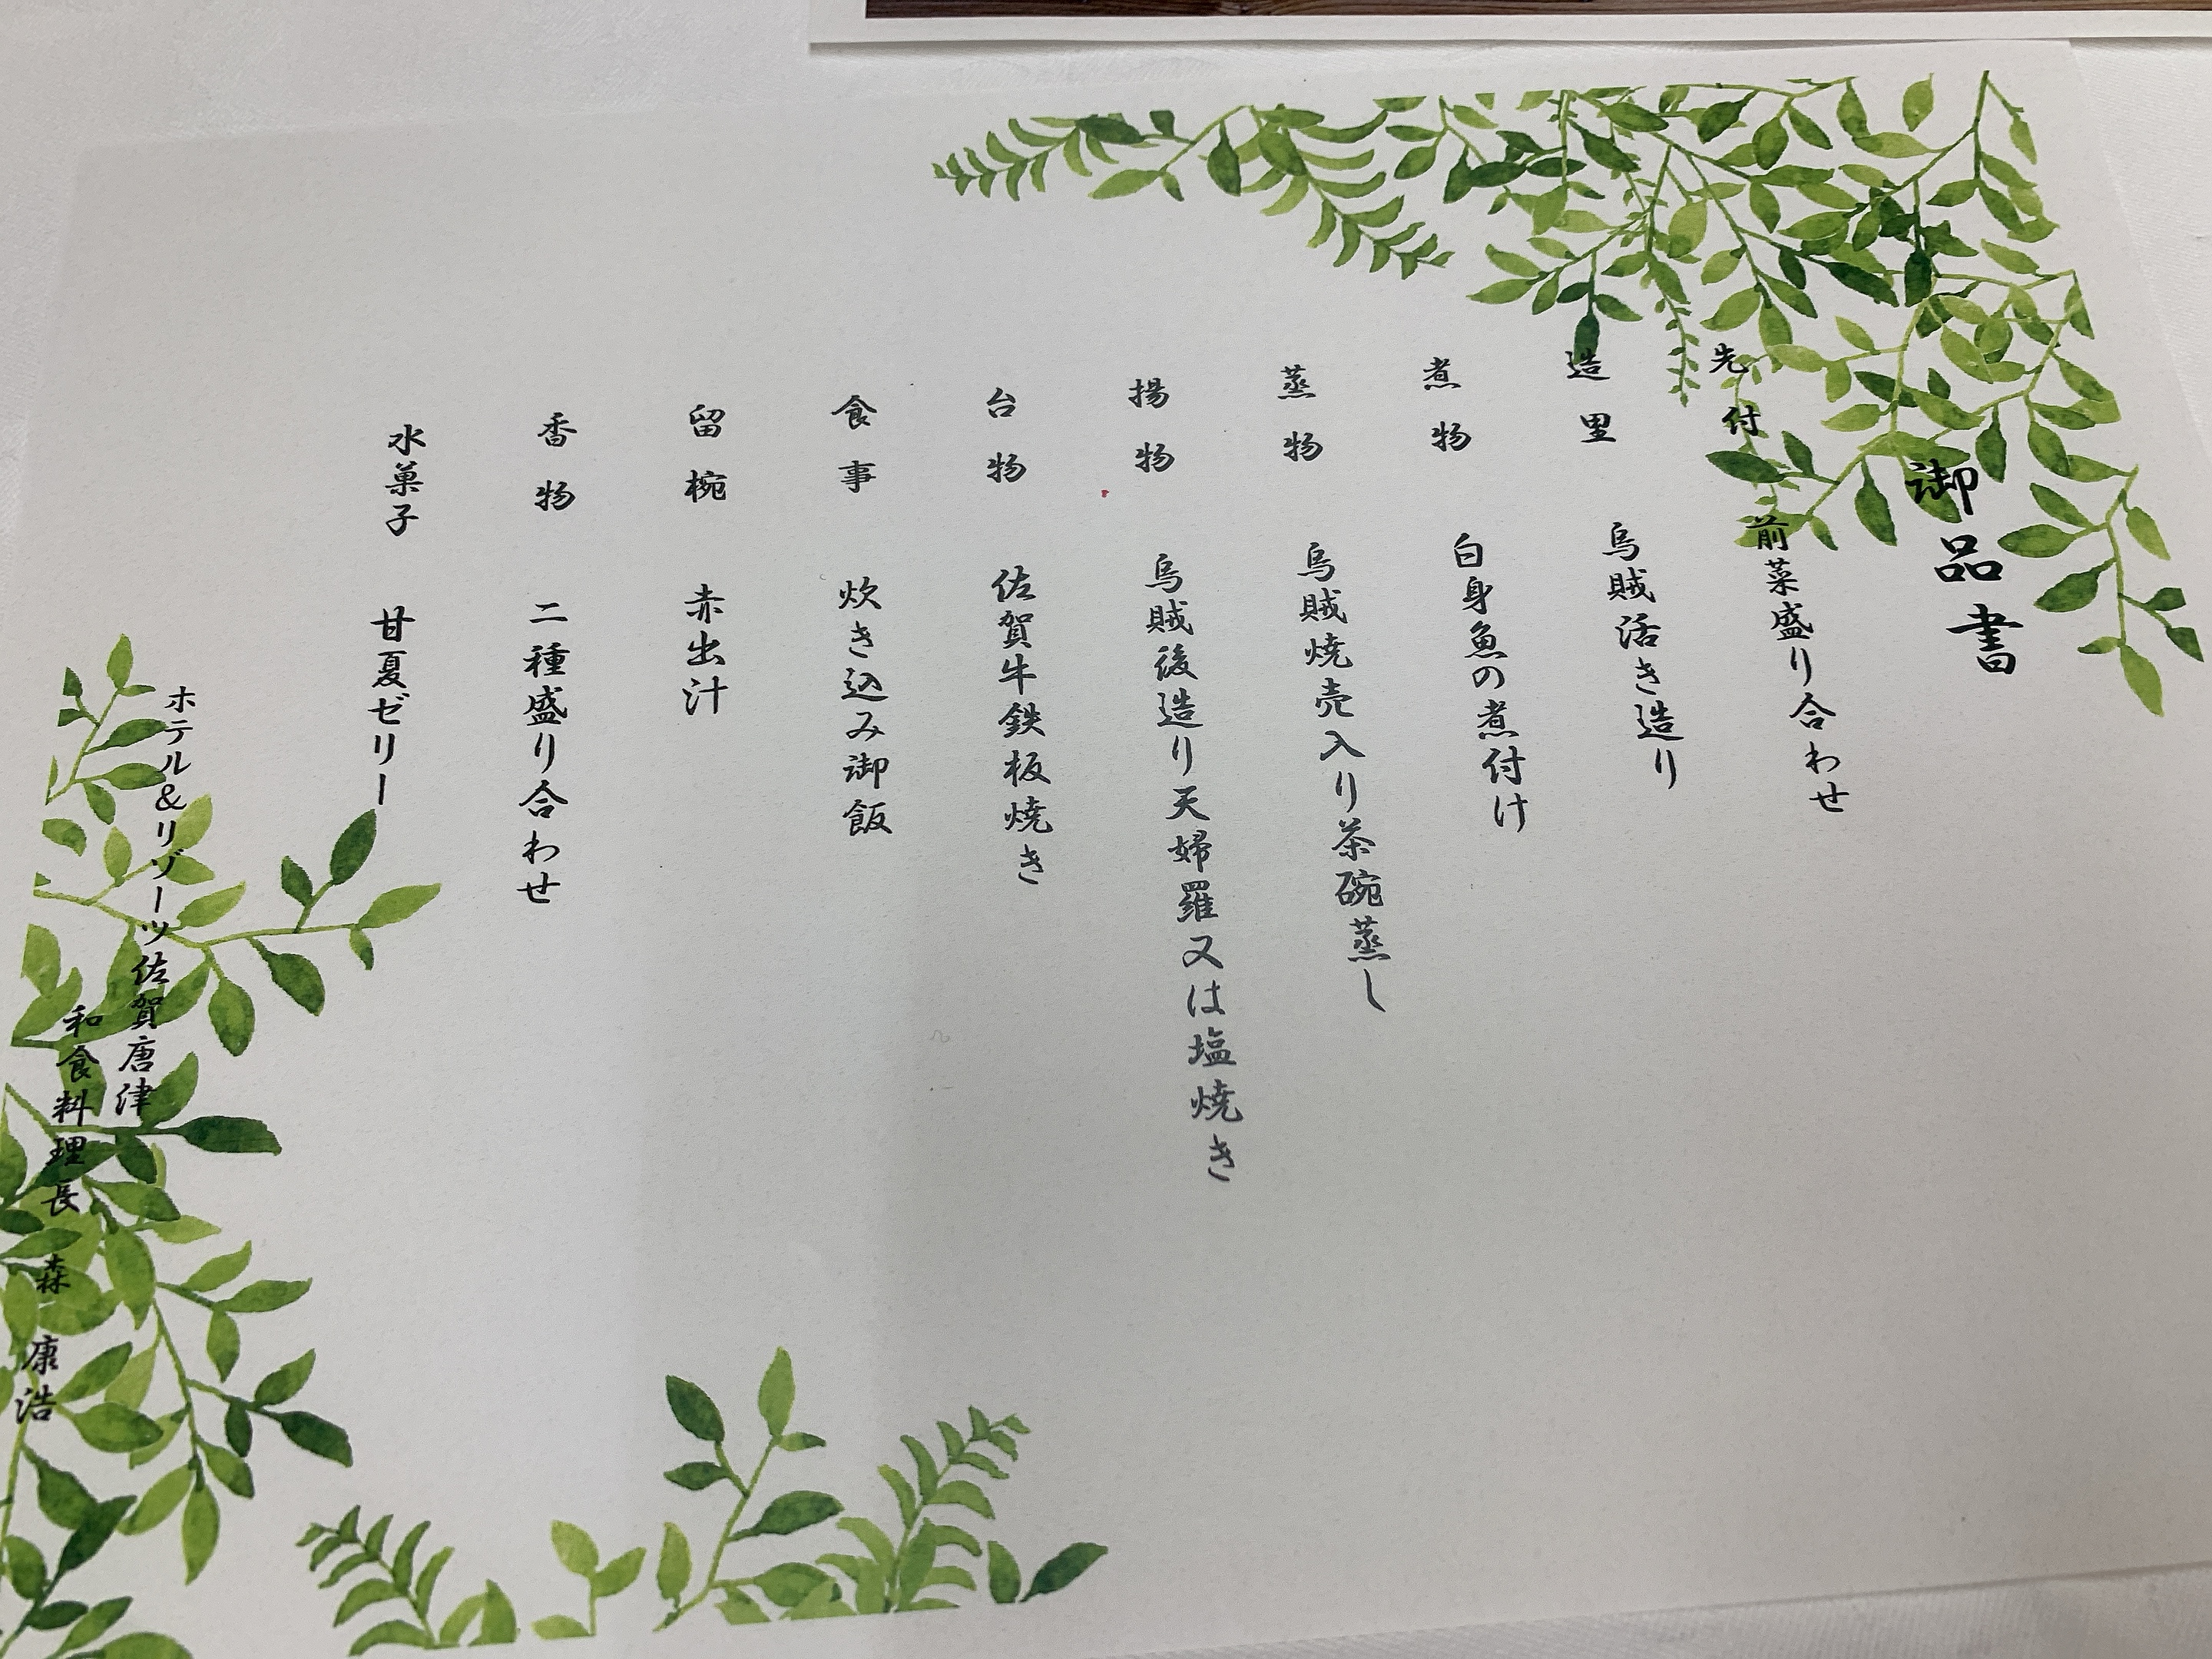 御品書
先付 前菜盛り合わせ
造里 烏賊活き造り
煮物 白身魚の煮付け
蒸物 烏賊焼売入り茶碗蒸し
揚物 烏賊後造り天婦羅又は塩焼き
台物 佐賀牛鉄板焼き
食事 炊き込み御飯
留椀 赤出汁
香物 二種盛り合わせ
水菓子 甘夏ゼリー
ホテル&リゾーツ佐賀唐津
和食料理長 森 康浩